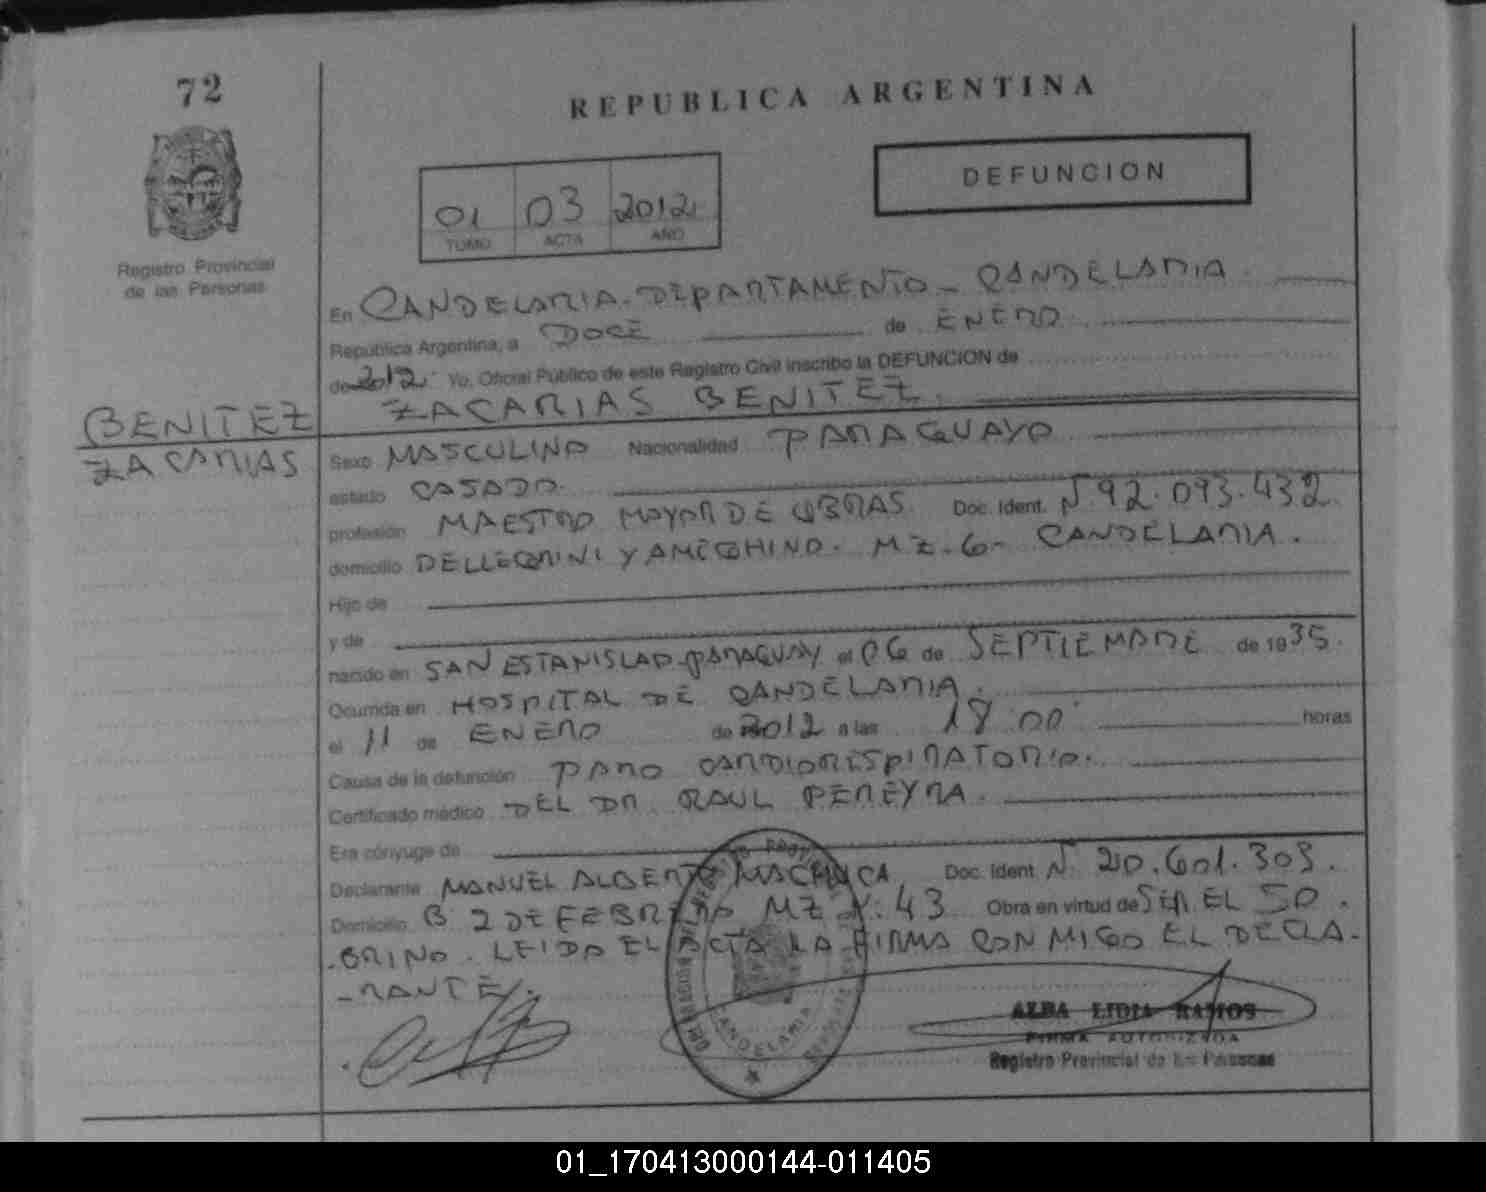 72
REPUBLICA ARGENTINA
DEFUNCION
01 03 2012
TOMO ACTA AÑO
Registro Provincial
de las Personas
En CANDELARIA - DEPARTAMENTO - CANDELARIA
República Argentina, a DOCE de ENERO
de 2012. Yo, Oficial Público de este Registro Civil inscribo la DEFUNCION de
ZACARIAS BENITEZ.
BENITEZ
ZACARIAS
Sexo MASCULINO Nacionalidad PARAGUAYO
estado CASADO.
profesión MAESTRO MAYOR DE OBRAS. Doc. Ident. N° 92.093.432
domicilio PELLEGRINI Y AMEGHINO. MZ. 6- CANDELARIA.
Hijo de
y de
nacido en SAN ESTANISLAO-PARAGUAY el 06 de SEPTIEMBRE de 1935.
Ocurrida en HOSPITAL DE CANDELARIA.
el 11 de ENERO de 2012 a las 18:00 horas
Causa de la defunción PARO CARDIORESPIRATORIO.
Certificado médico DEL DR. RAUL PEREYRA.
Era cónyuge de
Declarante MANUEL ALBERTO MACHUCA Doc. Ident. N° 20.601.303.
Domicilio B 2 DE FEBRERO MZ N: 43 Obra en virtud de SER EL SO
BRINO. LEIDO EL ACTA LA FIRMA CONMIGO EL DECLA-
-RANTE.
CANDELARIA
ALBA LIDIA RAMOS
FIRMA AUTORIZADA
Registro Provincial de las Personas
01_170413000144-011405